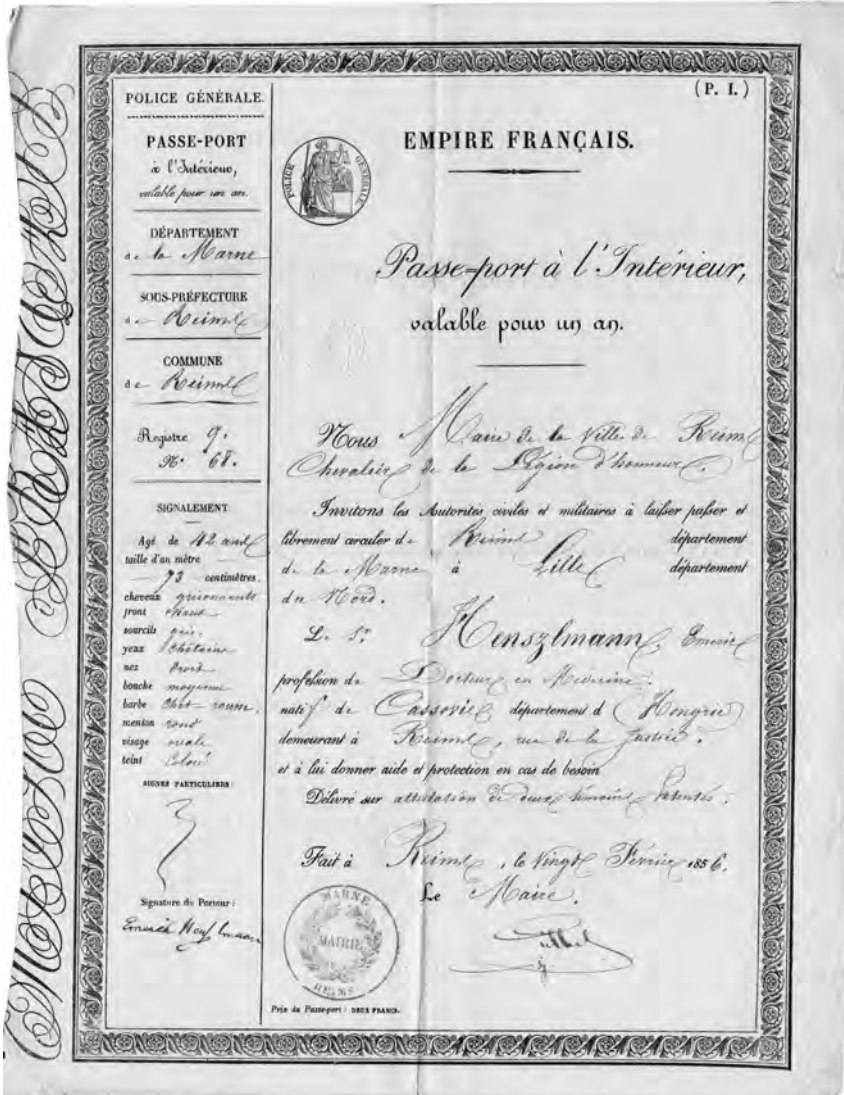 POLICE GÉNÉRALE.
PASSE-PORT
à l'Intérieur,
valable pour un an.
DÉPARTEMENT
de la Marne
SOUS-PRÉFECTURE
de Reims
COMMUNE
de Reims
Registre 9.
N° 68.
SIGNALEMENT
Agé de 42 ans
taille d'un mètre
73 centimètres.
cheveux grisonnants
front haut
sourcils gris.
yeux châtains
nez droit
bouche moyenne
barbe chât- rousse.
menton rond
visage ovale
teint coloré
SIGNES PARTICULIERS:
Signature du Porteur:
Emerich Henszlmann
(P. I.)
POLICE GÉNÉRALE
EMPIRE FRANÇAIS.
Passe=port à l'Intérieur,
valable pour un an.
Nous Maire de la Ville de Reims
Chevalier de la Légion d'honneur.
Invitons les Autorités civiles et militaires à laisser passer et
librement circuler de Reims département
de la Marne à Lille département
du Nord.
Le Sr. Henszlmann, Emeric
profession de Docteur en Médecine.
natif de Cassovie département d (Hongrie)
demeurant à Reims, rue de la Justice.
et à lui donner aide et protection en cas de besoin
Délivré sur attestation de deux témoins patentés.
Fait à Reims, le vingt Février 1856.
Le Maire.
MARNE
MAIRIE
REIMS
Prix du Passe-port: DEUX FRANCS.